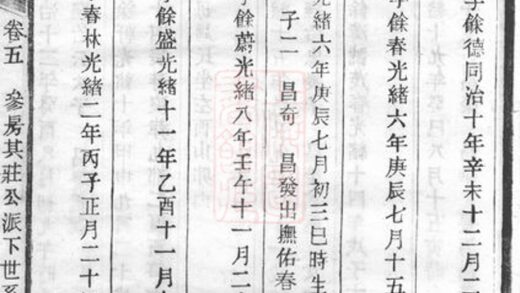 餘德同治十年辛未十二月二
餘春光緒六年庚辰七月十五
光緒六年庚辰七月初三巳時生
子二 昌奇 昌發出撫佑春
餘蔚光緒八年壬午十一月二
餘盛光緒十一年乙酉十一月
春林光緒二年丙子正月二十
卷五 叅房其莊公派下世系